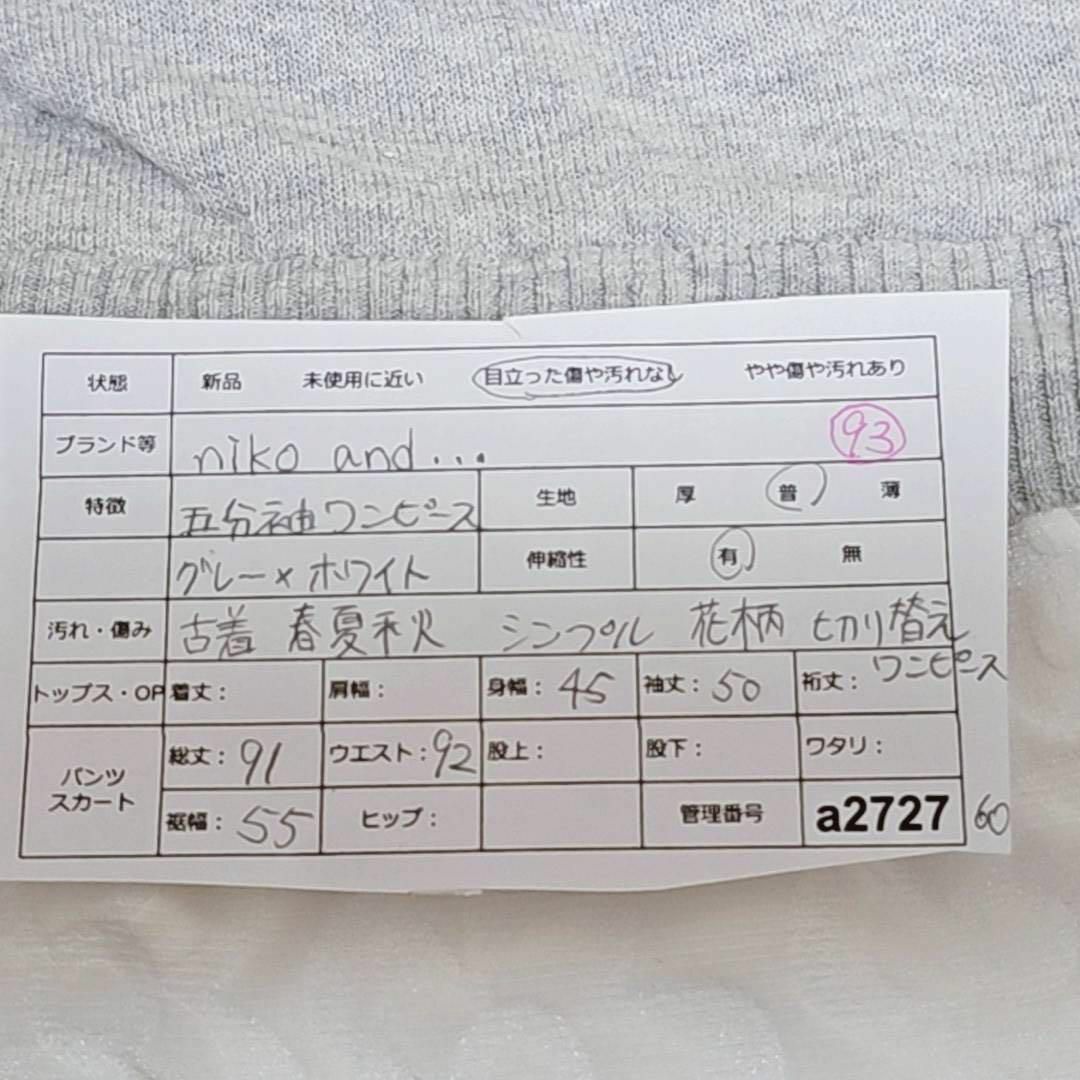 状態 新品 未使用に近い 目立った傷や汚れなし やや傷や汚れあり
ブランド等 niko and... 93
特徴 五分袖ワンピース 生地 厚 普 薄
グレー×ホワイト 伸縮性 有 無
汚れ・傷み 古着 春夏秋 シンプル 花柄 切り替え
ワンピース
トップス・OP 着丈： 肩幅： 身幅：45 袖丈：50 裄丈：
パンツ
スカート
総丈：91 ウエスト：92 股上： 股下： ワタリ：
裾幅：55 ヒップ： 管理番号 a2727 60